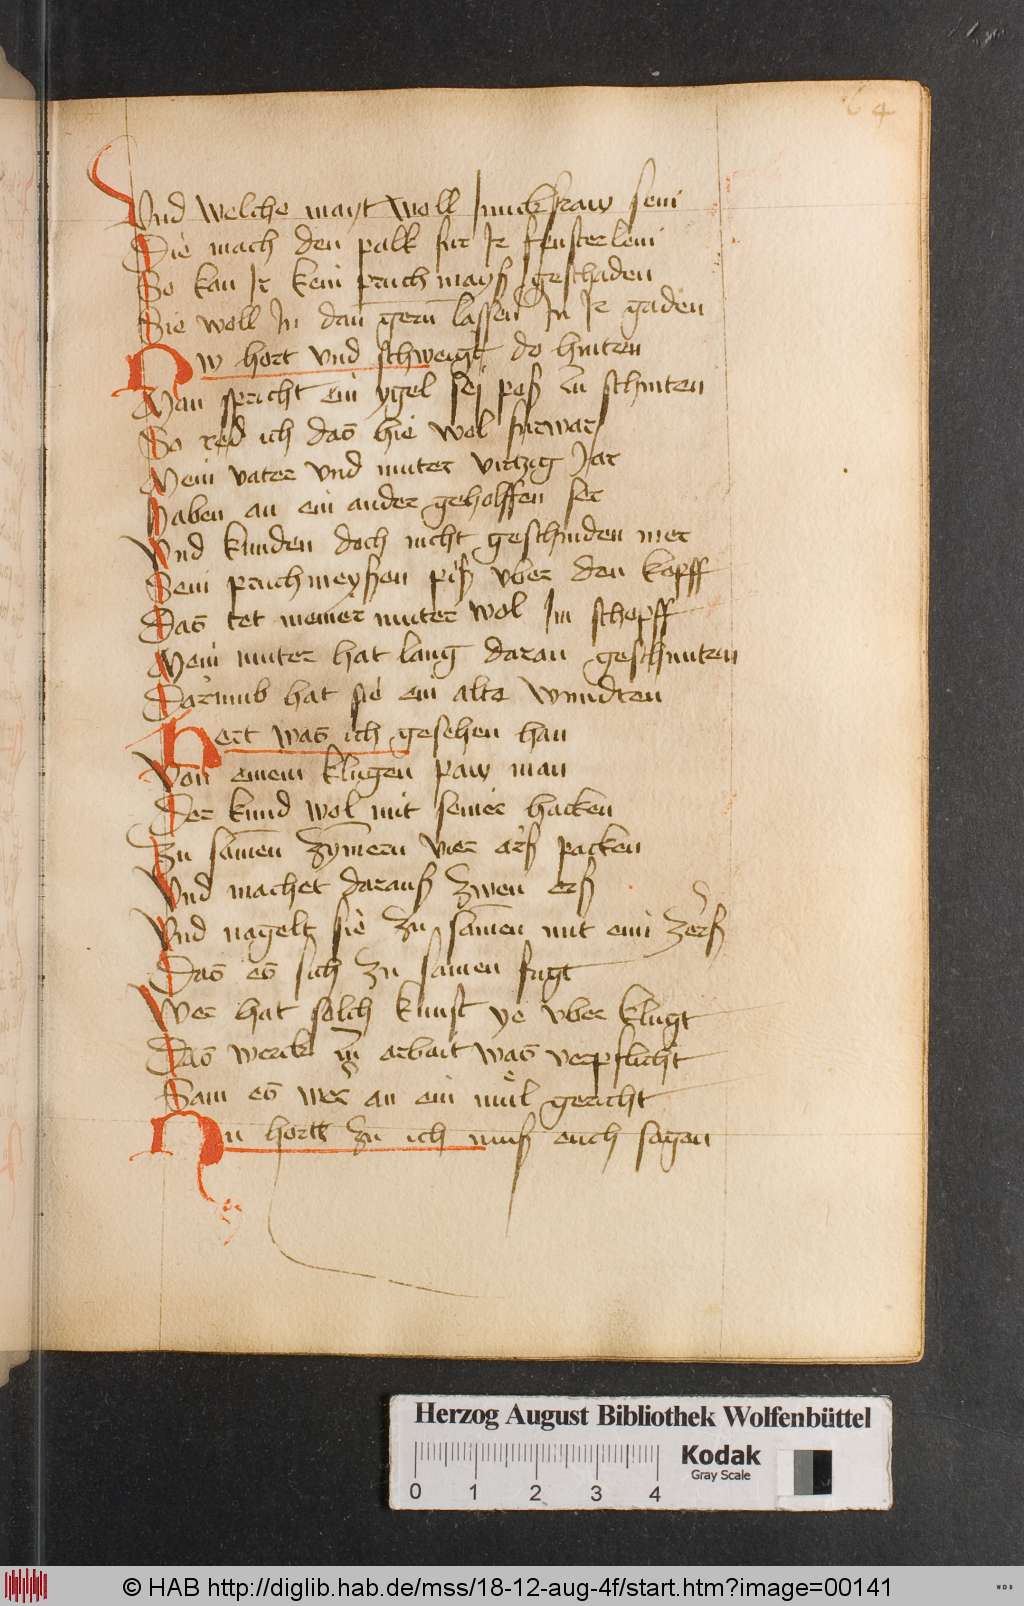 64
Vnd welche mayt woll Junckfraw sein
Die mach den palk fur Jr fensterlein
So kan Jr kein pruch mayß geschaden
Sie woll Jn dan gern lassen Jn Jr gaden
Nw hort vnd schweigt do hinten
Man spricht ein ygel sej poß zu schinten
So red ich das hie wol furwar
Mein vater vnd muter virtzig Jar
Haben an ein ander geholffen ser
Vnd kunden doch nicht geschinden mer
Sein pruchmeyßen piß vber den kopff
Das tet meiner muter wol Im schopff
Mein muter hat lang daran geschunten
Darumb hat sie ein alte wundten
Hert was ich gesehen han
Von einem klugen paw man
Der kund wol mit seiner hacken
Zu samen zymern vier erß packen
Vnd machet darauß zwen erß
Vnd nagelt sie zu samen mit eim zerß
Das es sich zu samen fugt
Wer hat solch kunst ye vber klugt
Das werck zu arbait was verpflicht
Sam es wer an ein mül gericht
Nu hortt zu ich muß euch sagen
Herzog August Bibliothek Wolfenbüttel
0 1 2 3 4
Kodak
Gray Scale
© HAB http://diglib.hab.de/mss/18-12-aug-4f/start.htm?image=00141